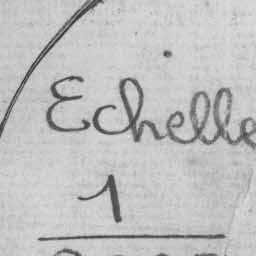 Echelle
1